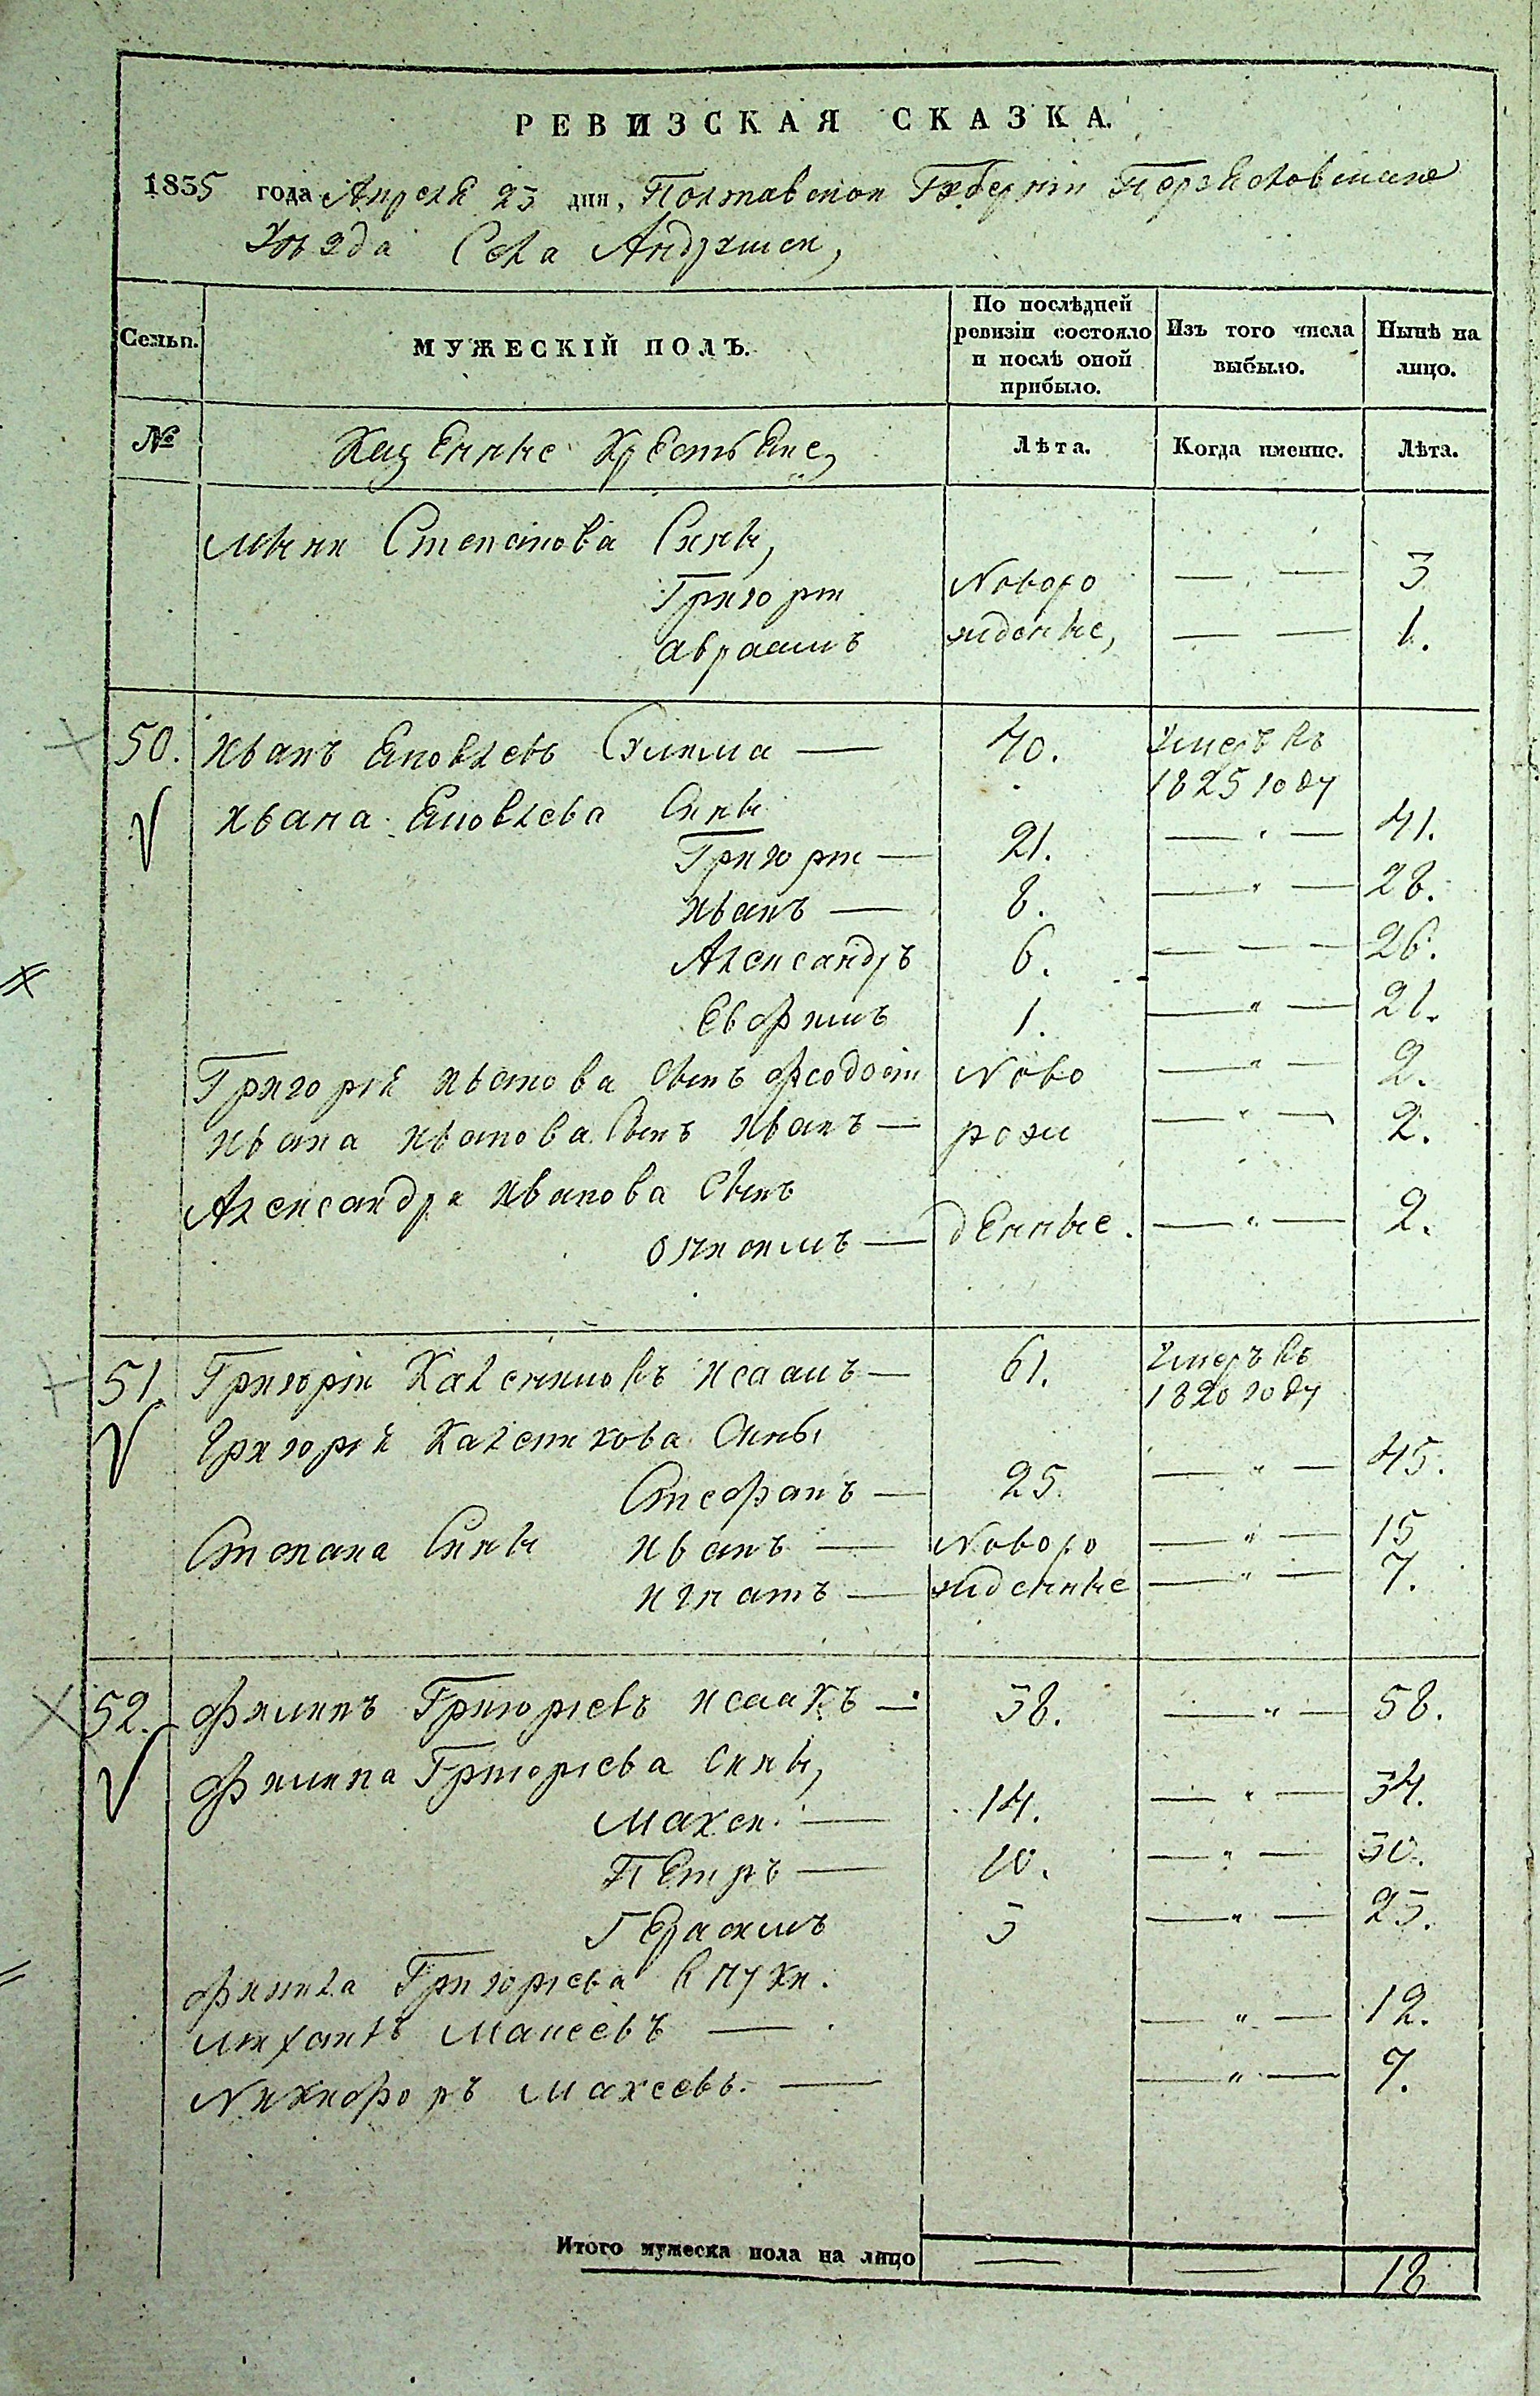 РЕВИЗСКАЯ СКАЗКА.
1835 года Апреля 25 дня, Полтавской Губерніи Переяславскаго
Уѣзда Села Андрушек,
Семьи. МУЖЕСКІЙ ПОЛЪ. По послѣдней ревизіи состояло и послѣ оной прибыло. Изъ того числа выбыло. Нынѣ на лицо.
№ Казенные Крестьяне, Лѣта. Когда именно. Лѣта.
Степанова Сины,
Григорій Новоро — — 3
Авраамъ жденые, — — 1.
50. Иванъ Яковлевъ — 40. Умеръ въ
1825 году
Ивана Яковлева Сины
Григорій — 21. — " — 41.
Иванъ — 8. — " — 28.
Александръ 6. — — — 26.
Евфимъ 1. — " — 21.
Григорія Иванова Сынъ Феодосій Ново — " — 2.
Ивана Иванова Сынъ Иванъ — рож — " — 2.
Александра Иванова Сынъ
— денные. — " — 2.
51. Григорій Калениковъ Исаакъ — 61. Умеръ въ
1820 году
Григорія Каленикова Сины
Стефанъ — 25. — " — 45.
Степана Сины Иванъ — Новоро — " — 15
Игнатъ — жденные — " — 7.
52. Филипъ Григорьевъ Исаакъ — 38. — " — 58.
Филипа Григорьева Сины,
Макей. — 14. — " — 34.
Петръ — 10. — " — 30.
Герасимъ 5 — " — 25.
Филипа Григорьева внуки.
Михаилъ Макеевъ — — " — 12.
Никифоръ Макеевъ. — — " — 7.
Итого мужеска пола на лицо — — 18